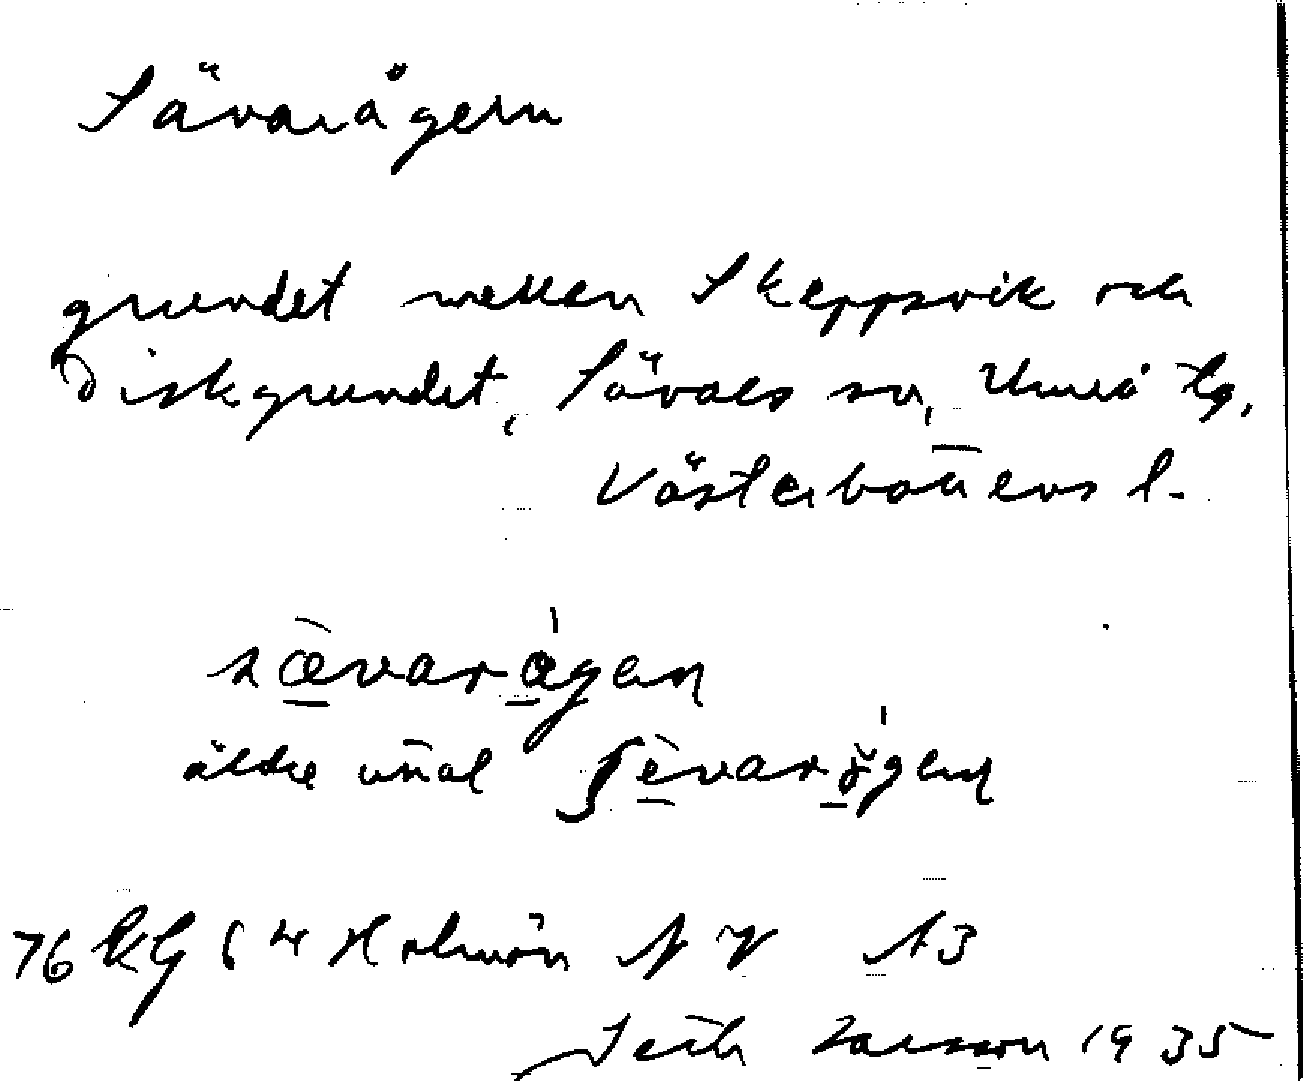 Sävarågern
grundet mellan Skeppsvik och
Diskgrundet, Sävars sn, Umeå tg,
Västerbottens l.
sævarågen
äldre uttal ʃèvar gen
76 RG 64 Holmön NV A3
Seth Larsson 1935